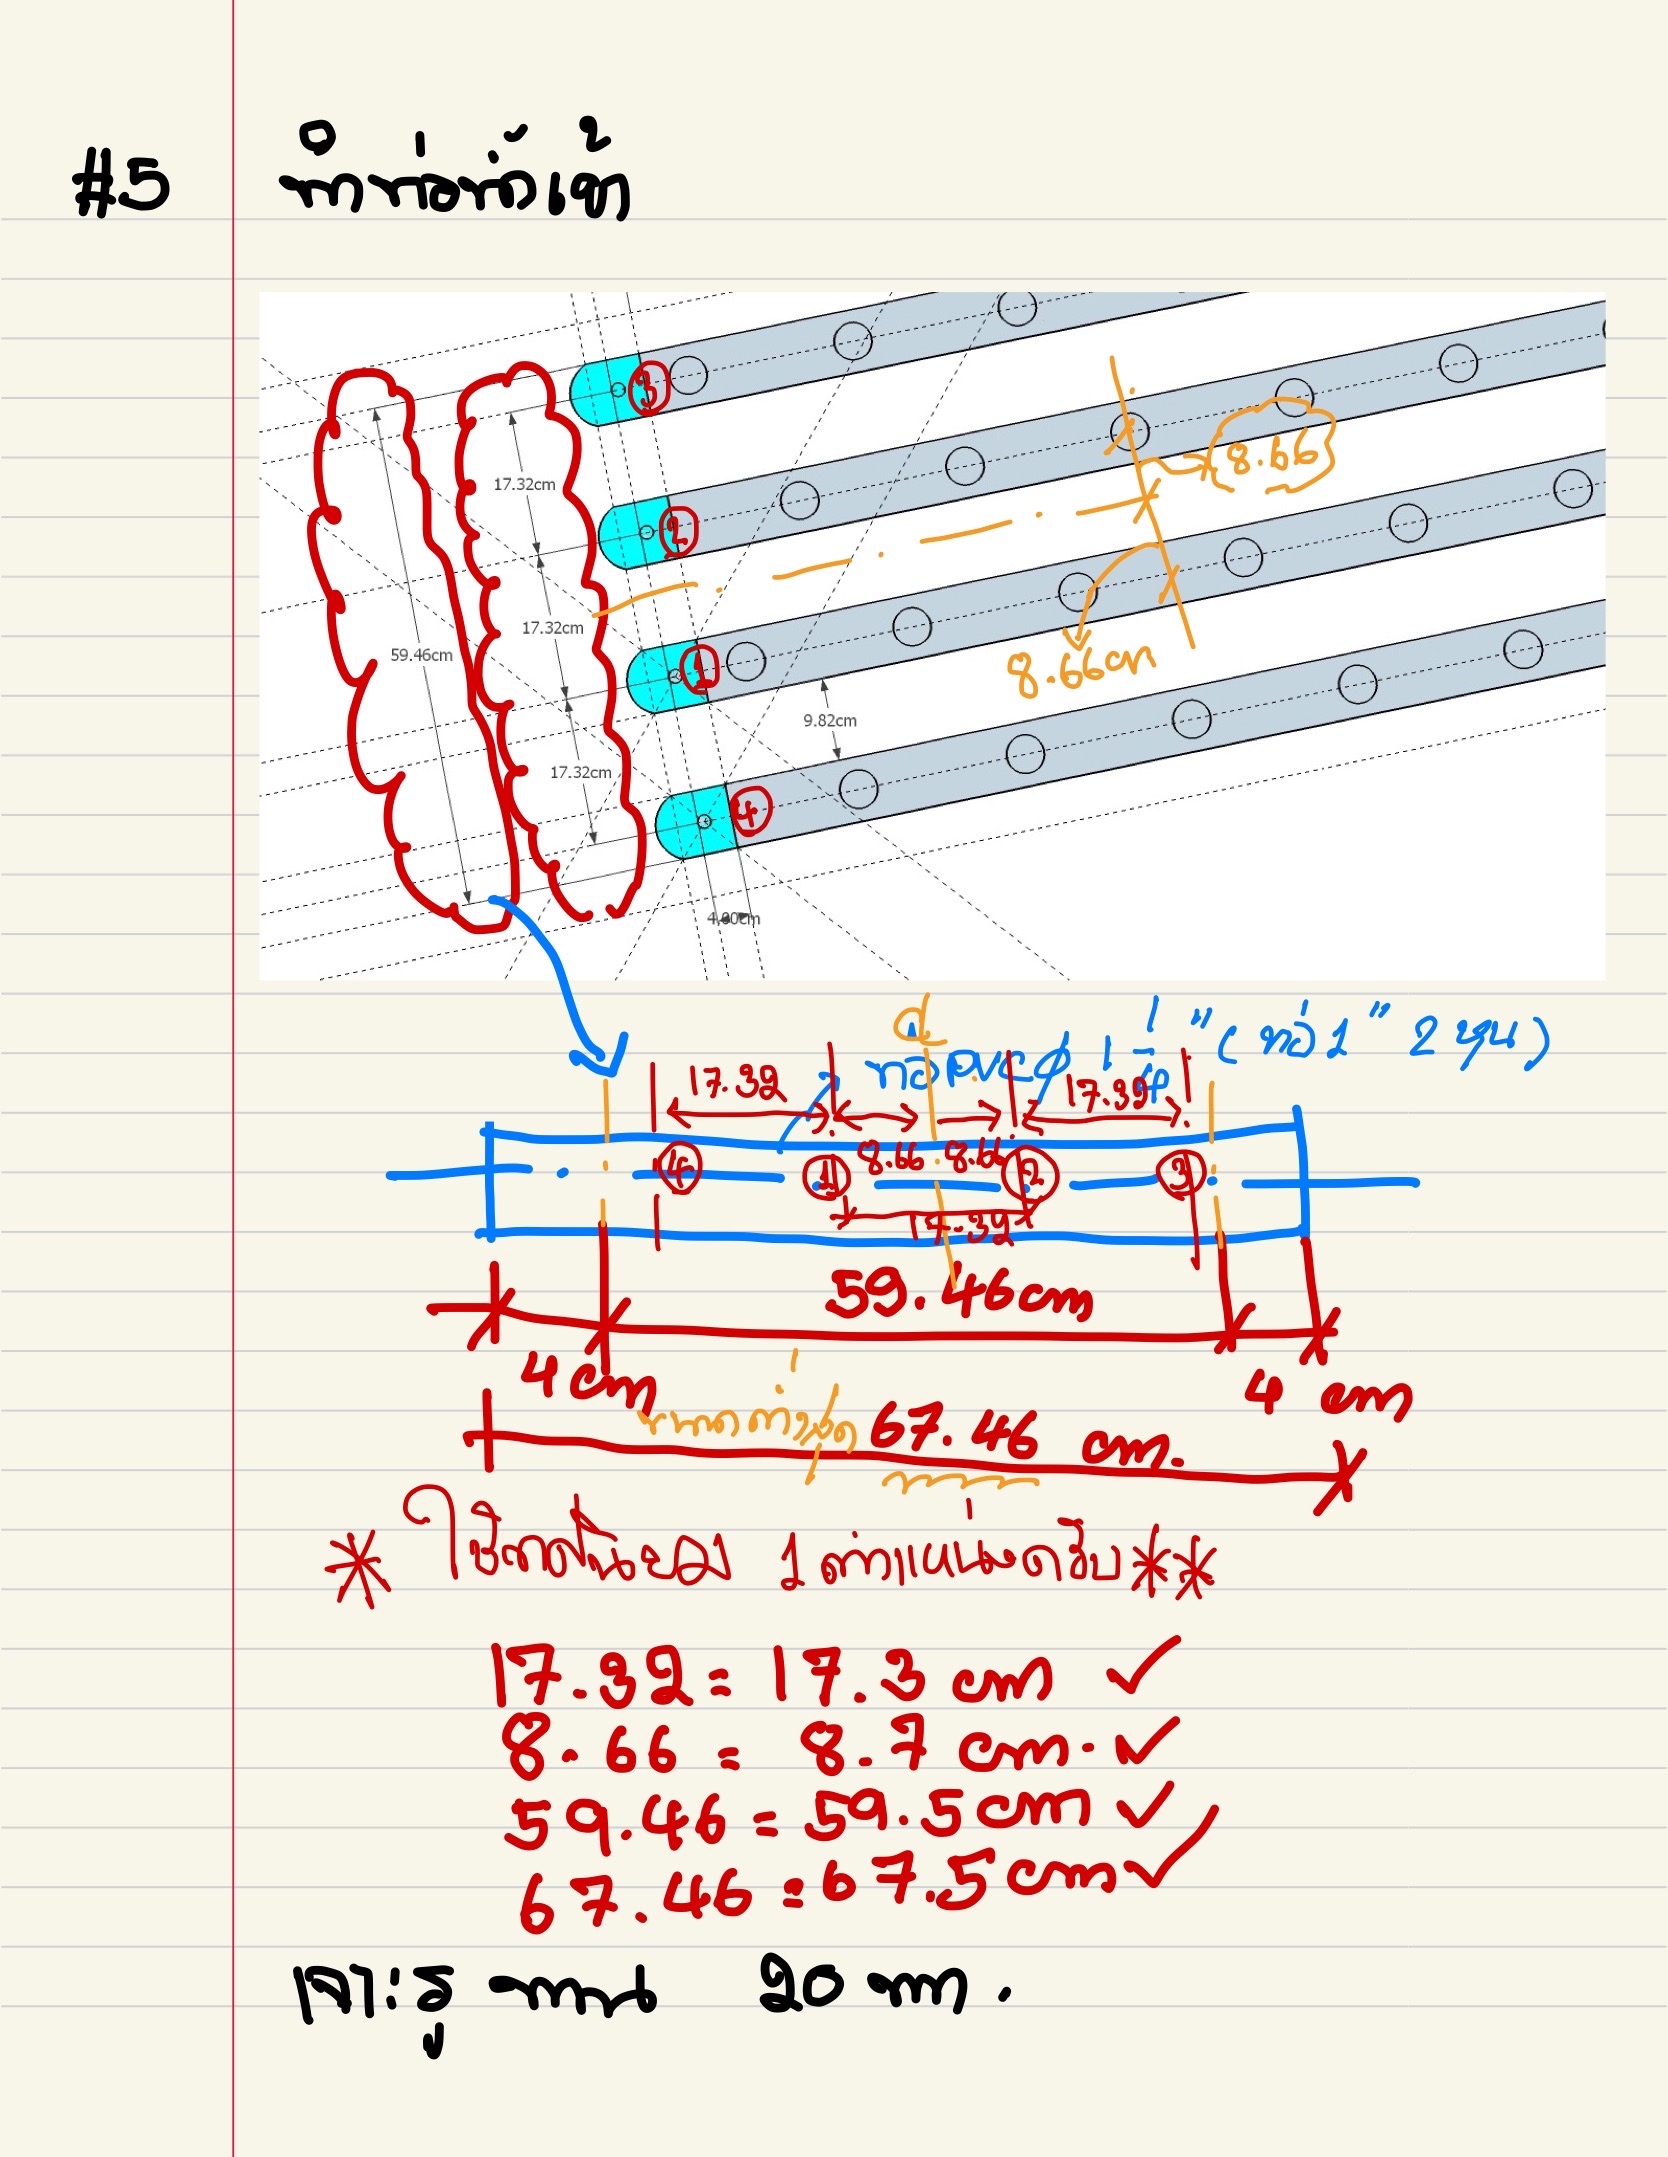 #5 ทำท่อน้ำเข้า
3
8.66
17.32cm
2
17.32cm
59.46cm
1
8.66cm
9.82cm
17.32cm
4
4.00cm
ท่อ PVC ⌀ 1 1/4 " ( ท่อ 1 " 2 หุน )
17.32
17.32
4
1
8.66
8.66
2
3
17.32
59.46cm
4 cm
4 cm
67.46 cm.
1 ตำแหน่งครับ**
17.32 = 17.3 cm ✓
8.66 = 8.7 cm. ✓
59.46 = 59.5 cm ✓
67.46 = 67.5 cm ✓
เจาะรู ขนาด 20 mm.